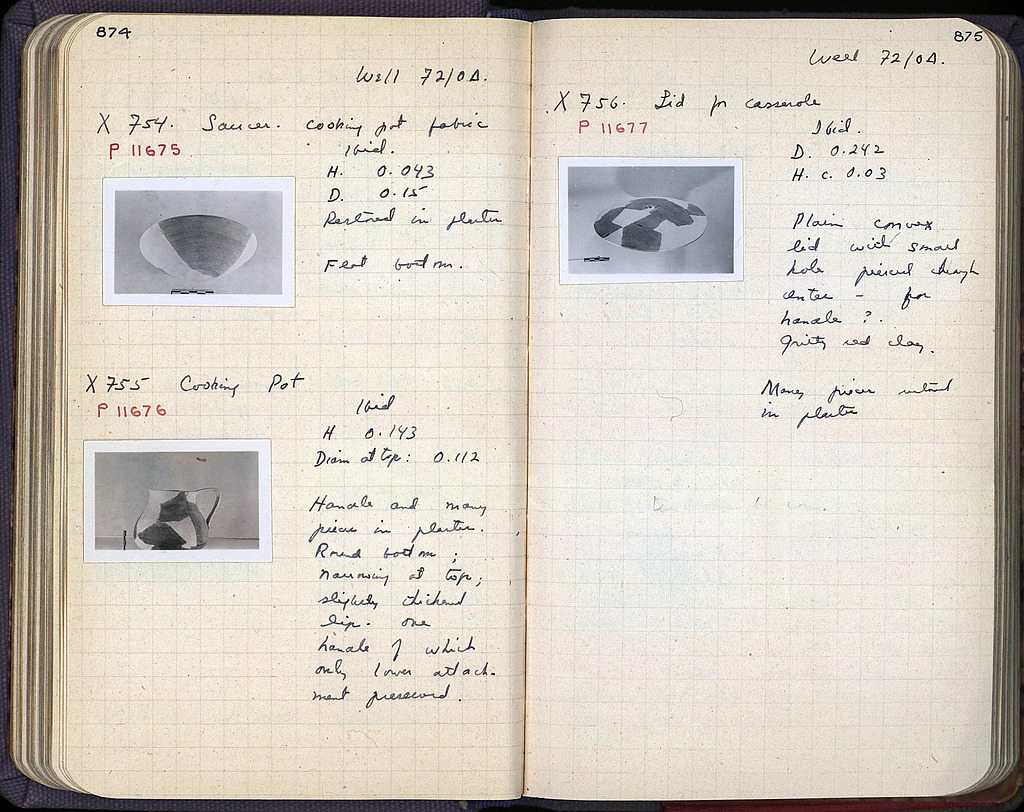 874
Well 72/ΟΔ.
X 754. Saucer. cooking pot fabric
P 11675
Ibid.
H. 0.043
D. 0.15
Restored in plaster
Flat bottom.
X 755 Cooking Pot
P 11676
Ibid
H 0.143
Diam at top: 0.112
Handle and many
pieces in plaster.
Round bottom;
narrowing at top;
slightly thickened
lip. one
handle of which
only lower attach-
ment preserved.
875
Well 72/ΟΔ.
X 756. Lid for casserole
P 11677
Ibid.
D. 0.242
H. c. 0.03
Plain convex
lid with small
hole pierced through
center - for
handle ?.
Gritty red clay.
Many pieces restored
in plaster